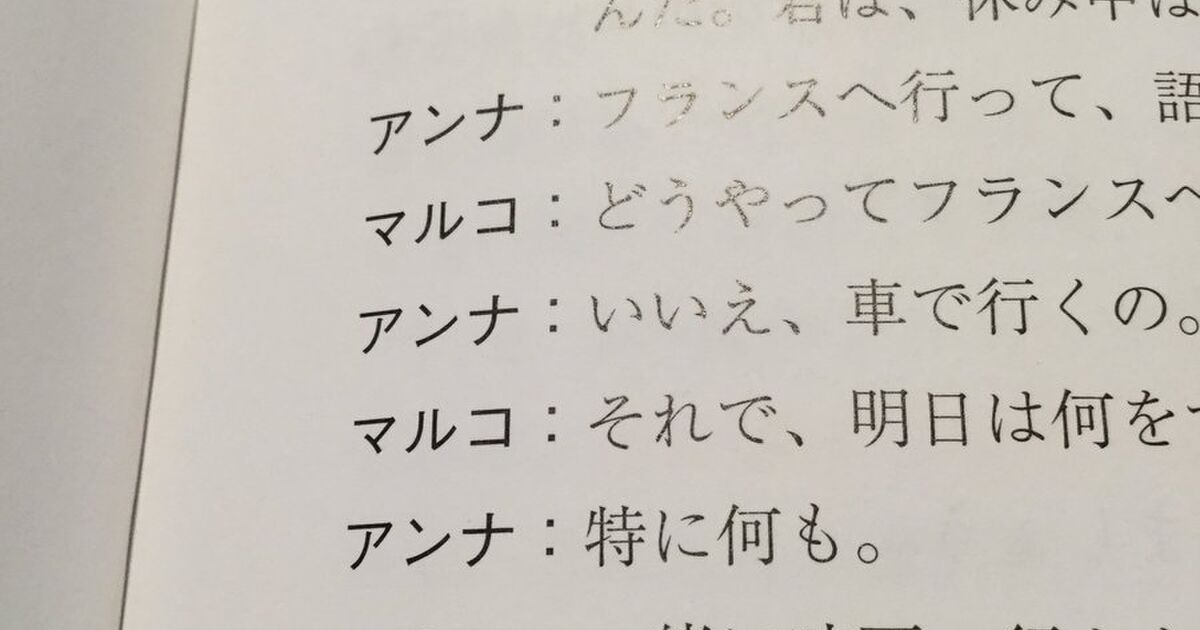 んだ。君は、休み中は
アンナ：フランスへ行って、語
マルコ：どうやってフランスへ
アンナ：いいえ、車で行くの。
マルコ：それで、明日は何を
アンナ：特に何も。